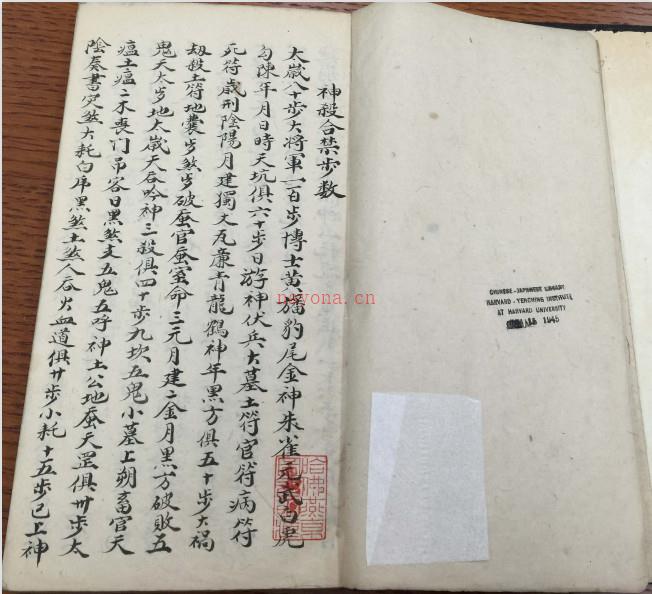 神殺合禁步数
太歲八十步大将軍一百步博士黃旛豹尾金神朱雀元武白虎
勾陳年月日時天坑俱六十步日游神伏兵大墓土符官符病符
死符歲刑陰陽月建獨火瓦廉青龍鶴神年黑方俱五十步大禍
刼殺土符地囊歩煞歩破蚕官蚕室命三元月建二金月黑方破敗五
鬼天太歩地太歲天吞吟神三殺俱四十歩九坎五鬼小墓上朔畜官天
瘟土瘟二木喪門吊客日黑煞支五鬼五呼神土公地蚕天罡俱卅歩太
陰奏書灾煞大耗白席黑煞土煞人吞火血道俱廿歩小耗十五歩已上神
nayona.cn
CHINESE-JAPANESE LIBRARY
HARVARD-YENCHING INSTITUTE
AT HARVARD UNIVERSITY
1945
哈佛燕京